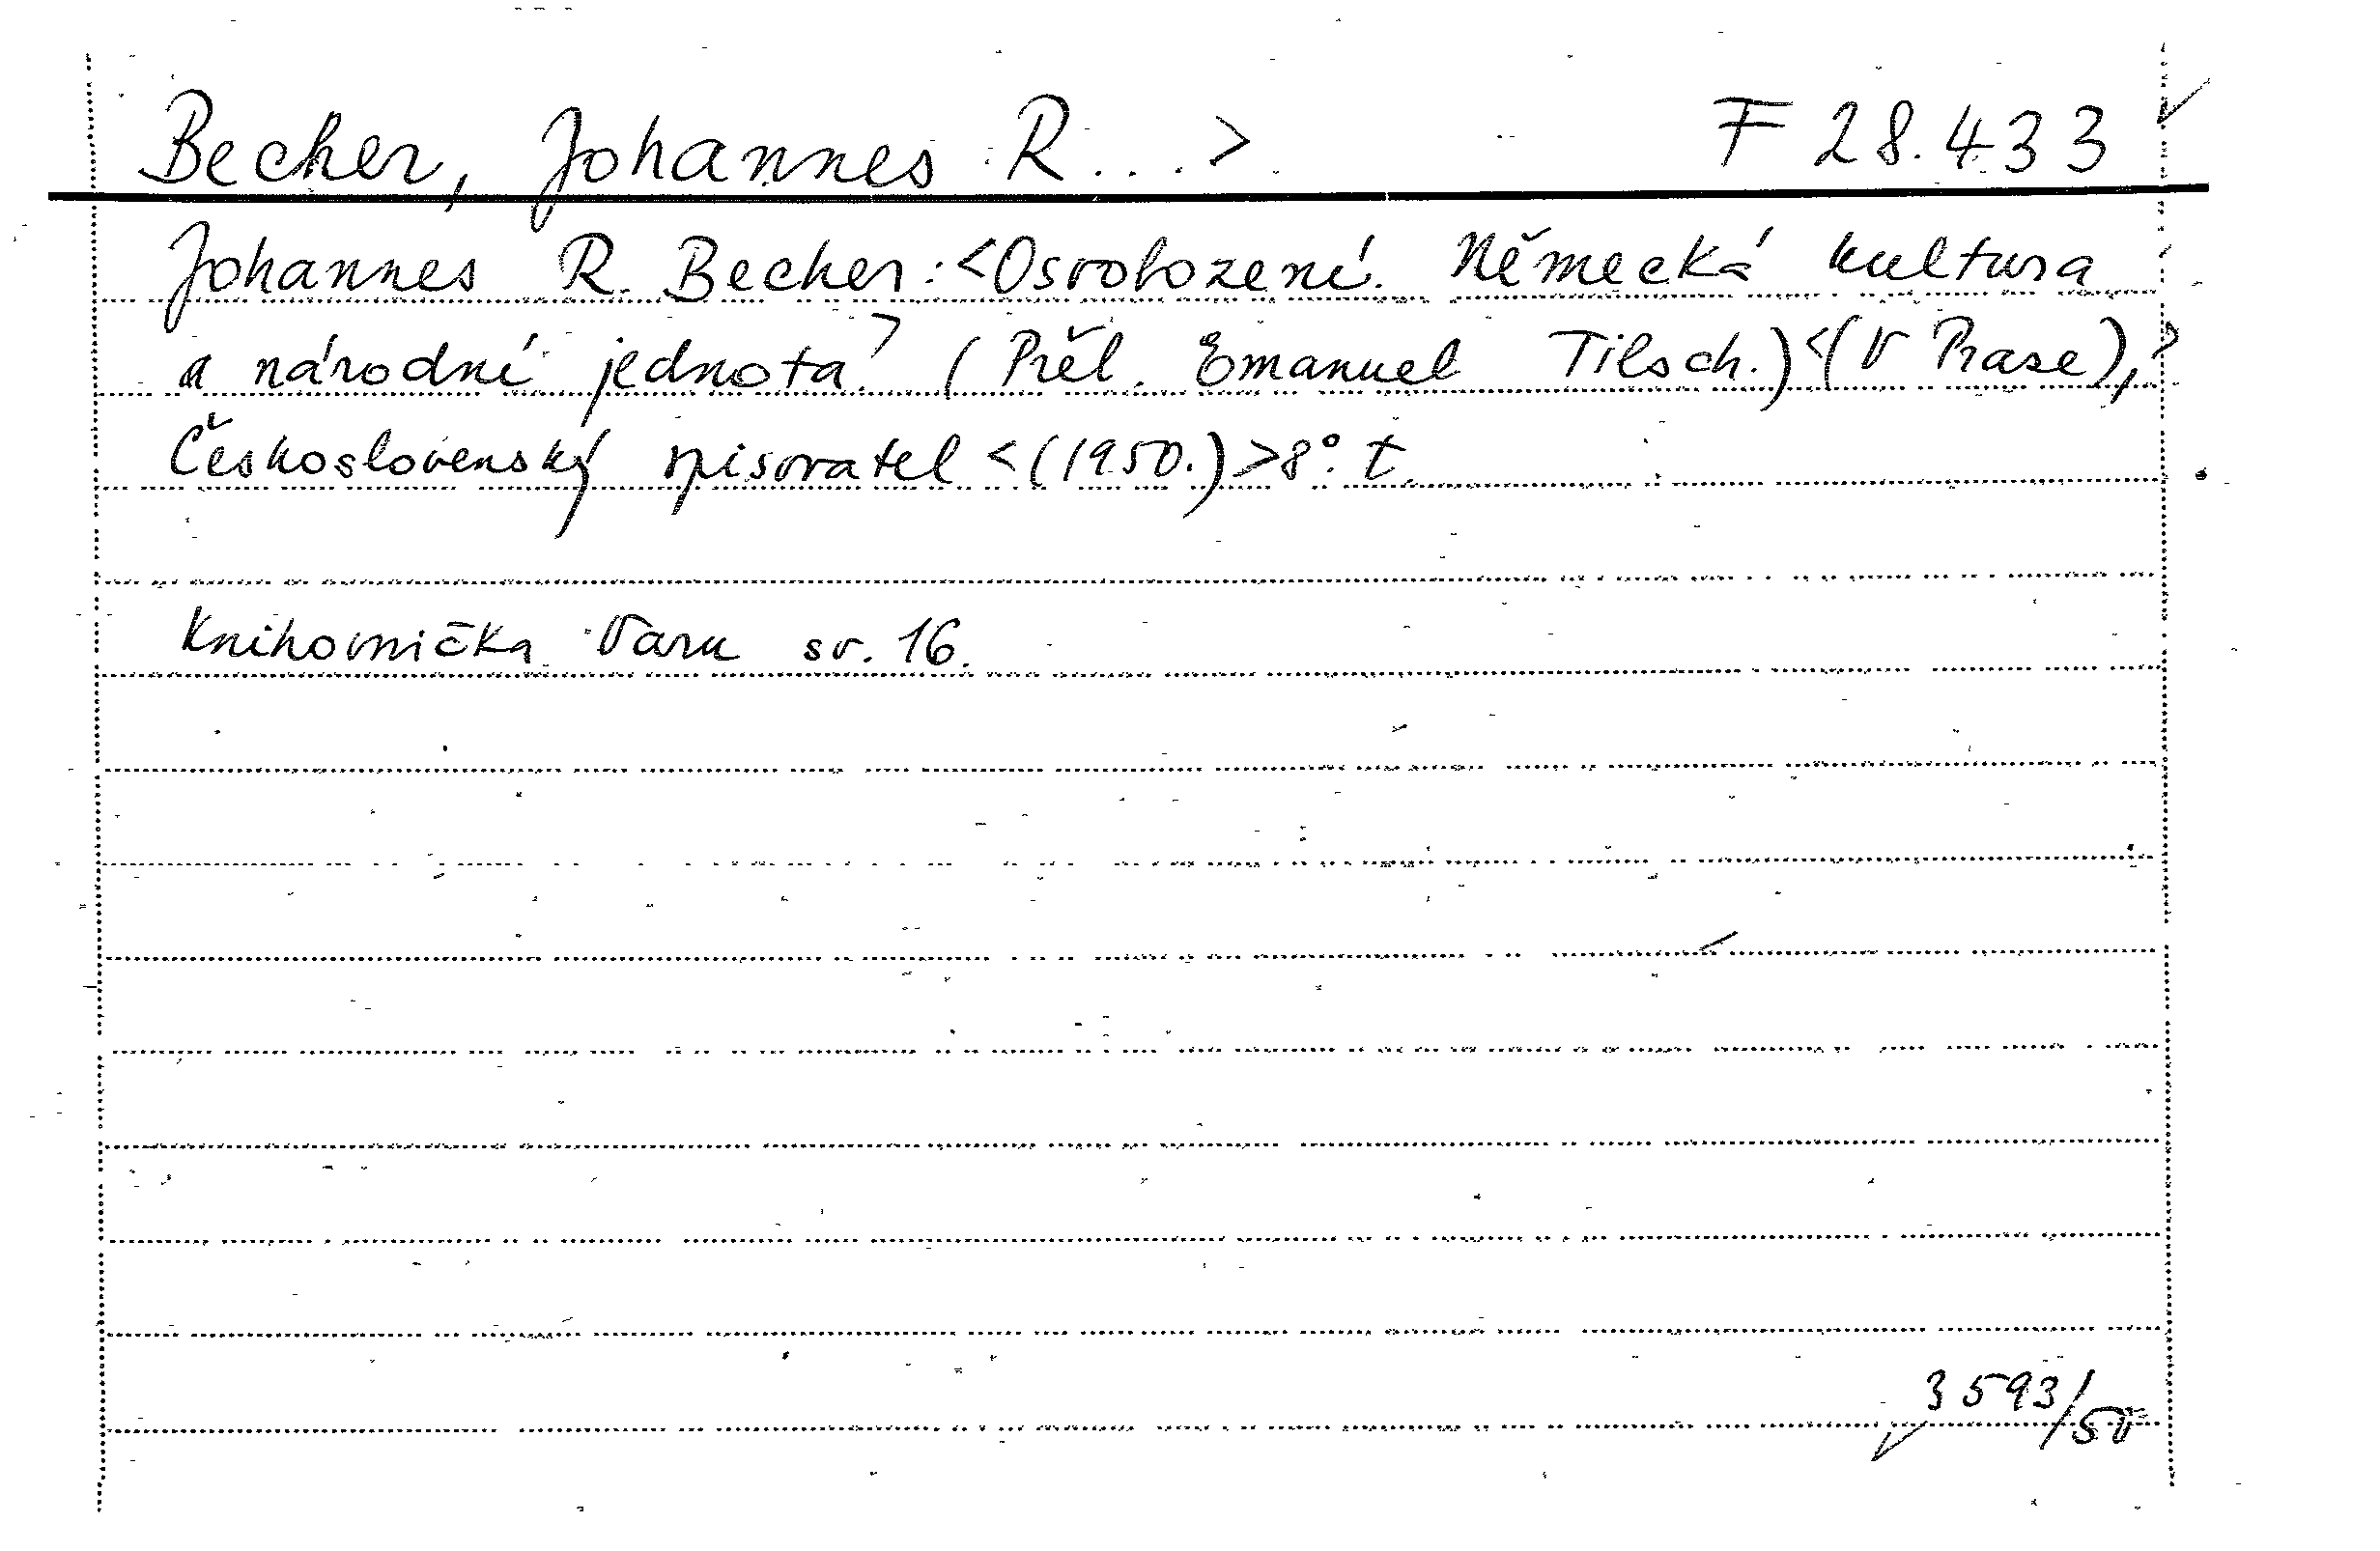 Becher, Johannes R...> F 28.433
Johannes R. Becher: <Osvobození. Německá kultura
a národní jednota.> (Přel. Emanuel Tilsch.) <(V Praze),>
Československý spisovatel <(1950.)> 8°. t.
Knihovnička Varu sv. 16.
3593/50